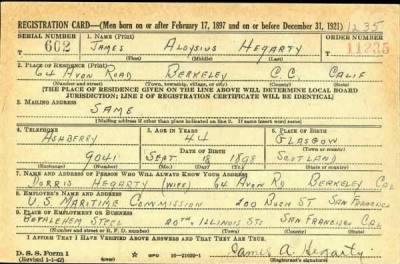 REGISTRATION CARD—(Men born on or after February 17, 1897 and on or before December 31, 1921) 1235
SERIAL NUMBER 1. NAME (Print) ORDER NUMBER
U 602 JAMES ALOYSIUS HEGARTY 11235
(First) (Middle) (Last)
2. PLACE OF RESIDENCE (Print)
64 AVON ROAD BERKELEY C.C. CALIF
(Number and street) (Town, township, village, or city) (County) (State)
(THE PLACE OF RESIDENCE GIVEN ON THE LINE ABOVE WILL DETERMINE LOCAL BOARD
JURISDICTION; LINE 2 OF REGISTRATION CERTIFICATE WILL BE IDENTICAL)
3. MAILING ADDRESS
SAME
(Mailing address if other than place indicated on line 2. If same insert word same)
4. TELEPHONE 5. AGE IN YEARS 6. PLACE OF BIRTH
ASHBERRY 44 GLASGOW
DATE OF BIRTH (Town or county)
9041 SEPT 18 1898 SCOTLAND
(Exchange) (Number) (Mo.) (Day) (Yr.) (State or country)
7. NAME AND ADDRESS OF PERSON WHO WILL ALWAYS KNOW YOUR ADDRESS
DORRIS HEGARTY (WIFE) 64 AVON RD BERKELEY CAL
8. EMPLOYER'S NAME AND ADDRESS
U.S. MARITIME COMMISSION 200 BUSH ST SAN FRANCISCO
9. PLACE OF EMPLOYMENT OR BUSINESS
BETHLEHEM STEEL 20TH, ILLINOIS STS SAN FRANCISCO CAL
(Number and street or R. F. D. number) (Town) (County) (State)
I AFFIRM THAT I HAVE VERIFIED ABOVE ANSWERS AND THAT THEY ARE TRUE.
D. S. S. Form 1 GPO 16-21630-1 James A. Hegarty
(Revised 1-1-42) (Registrant's signature)